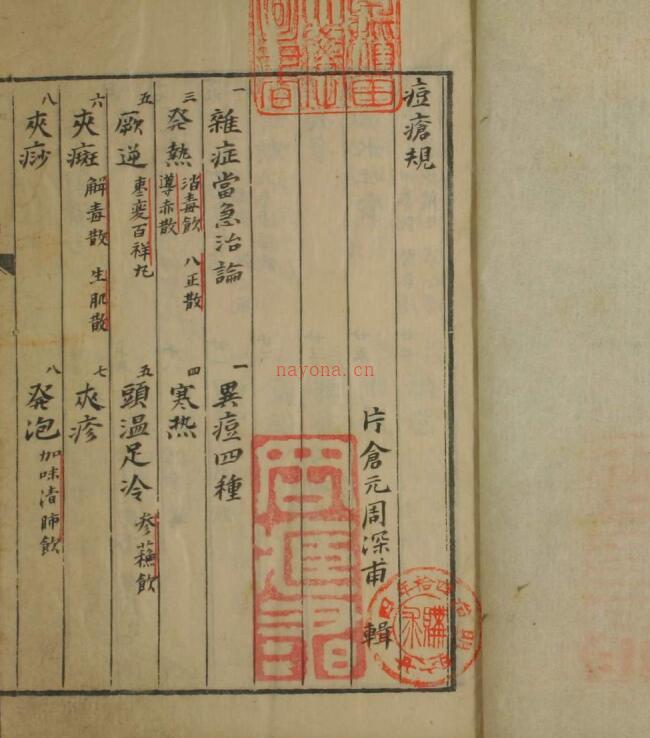 痘瘡規
片倉元周深甫 輯
一 雜症當急治論 一 異痘四種
三 発熱 消毒飲 八正散 導赤散 四 寒热
五 厥逆 棗変百祥丸 五 頭温足冷 参蘇飲
六 夾癍 解毒散 生肌散 七 夾疹
八 夾痧 八 発泡 加味清肺飲
nayona.cn